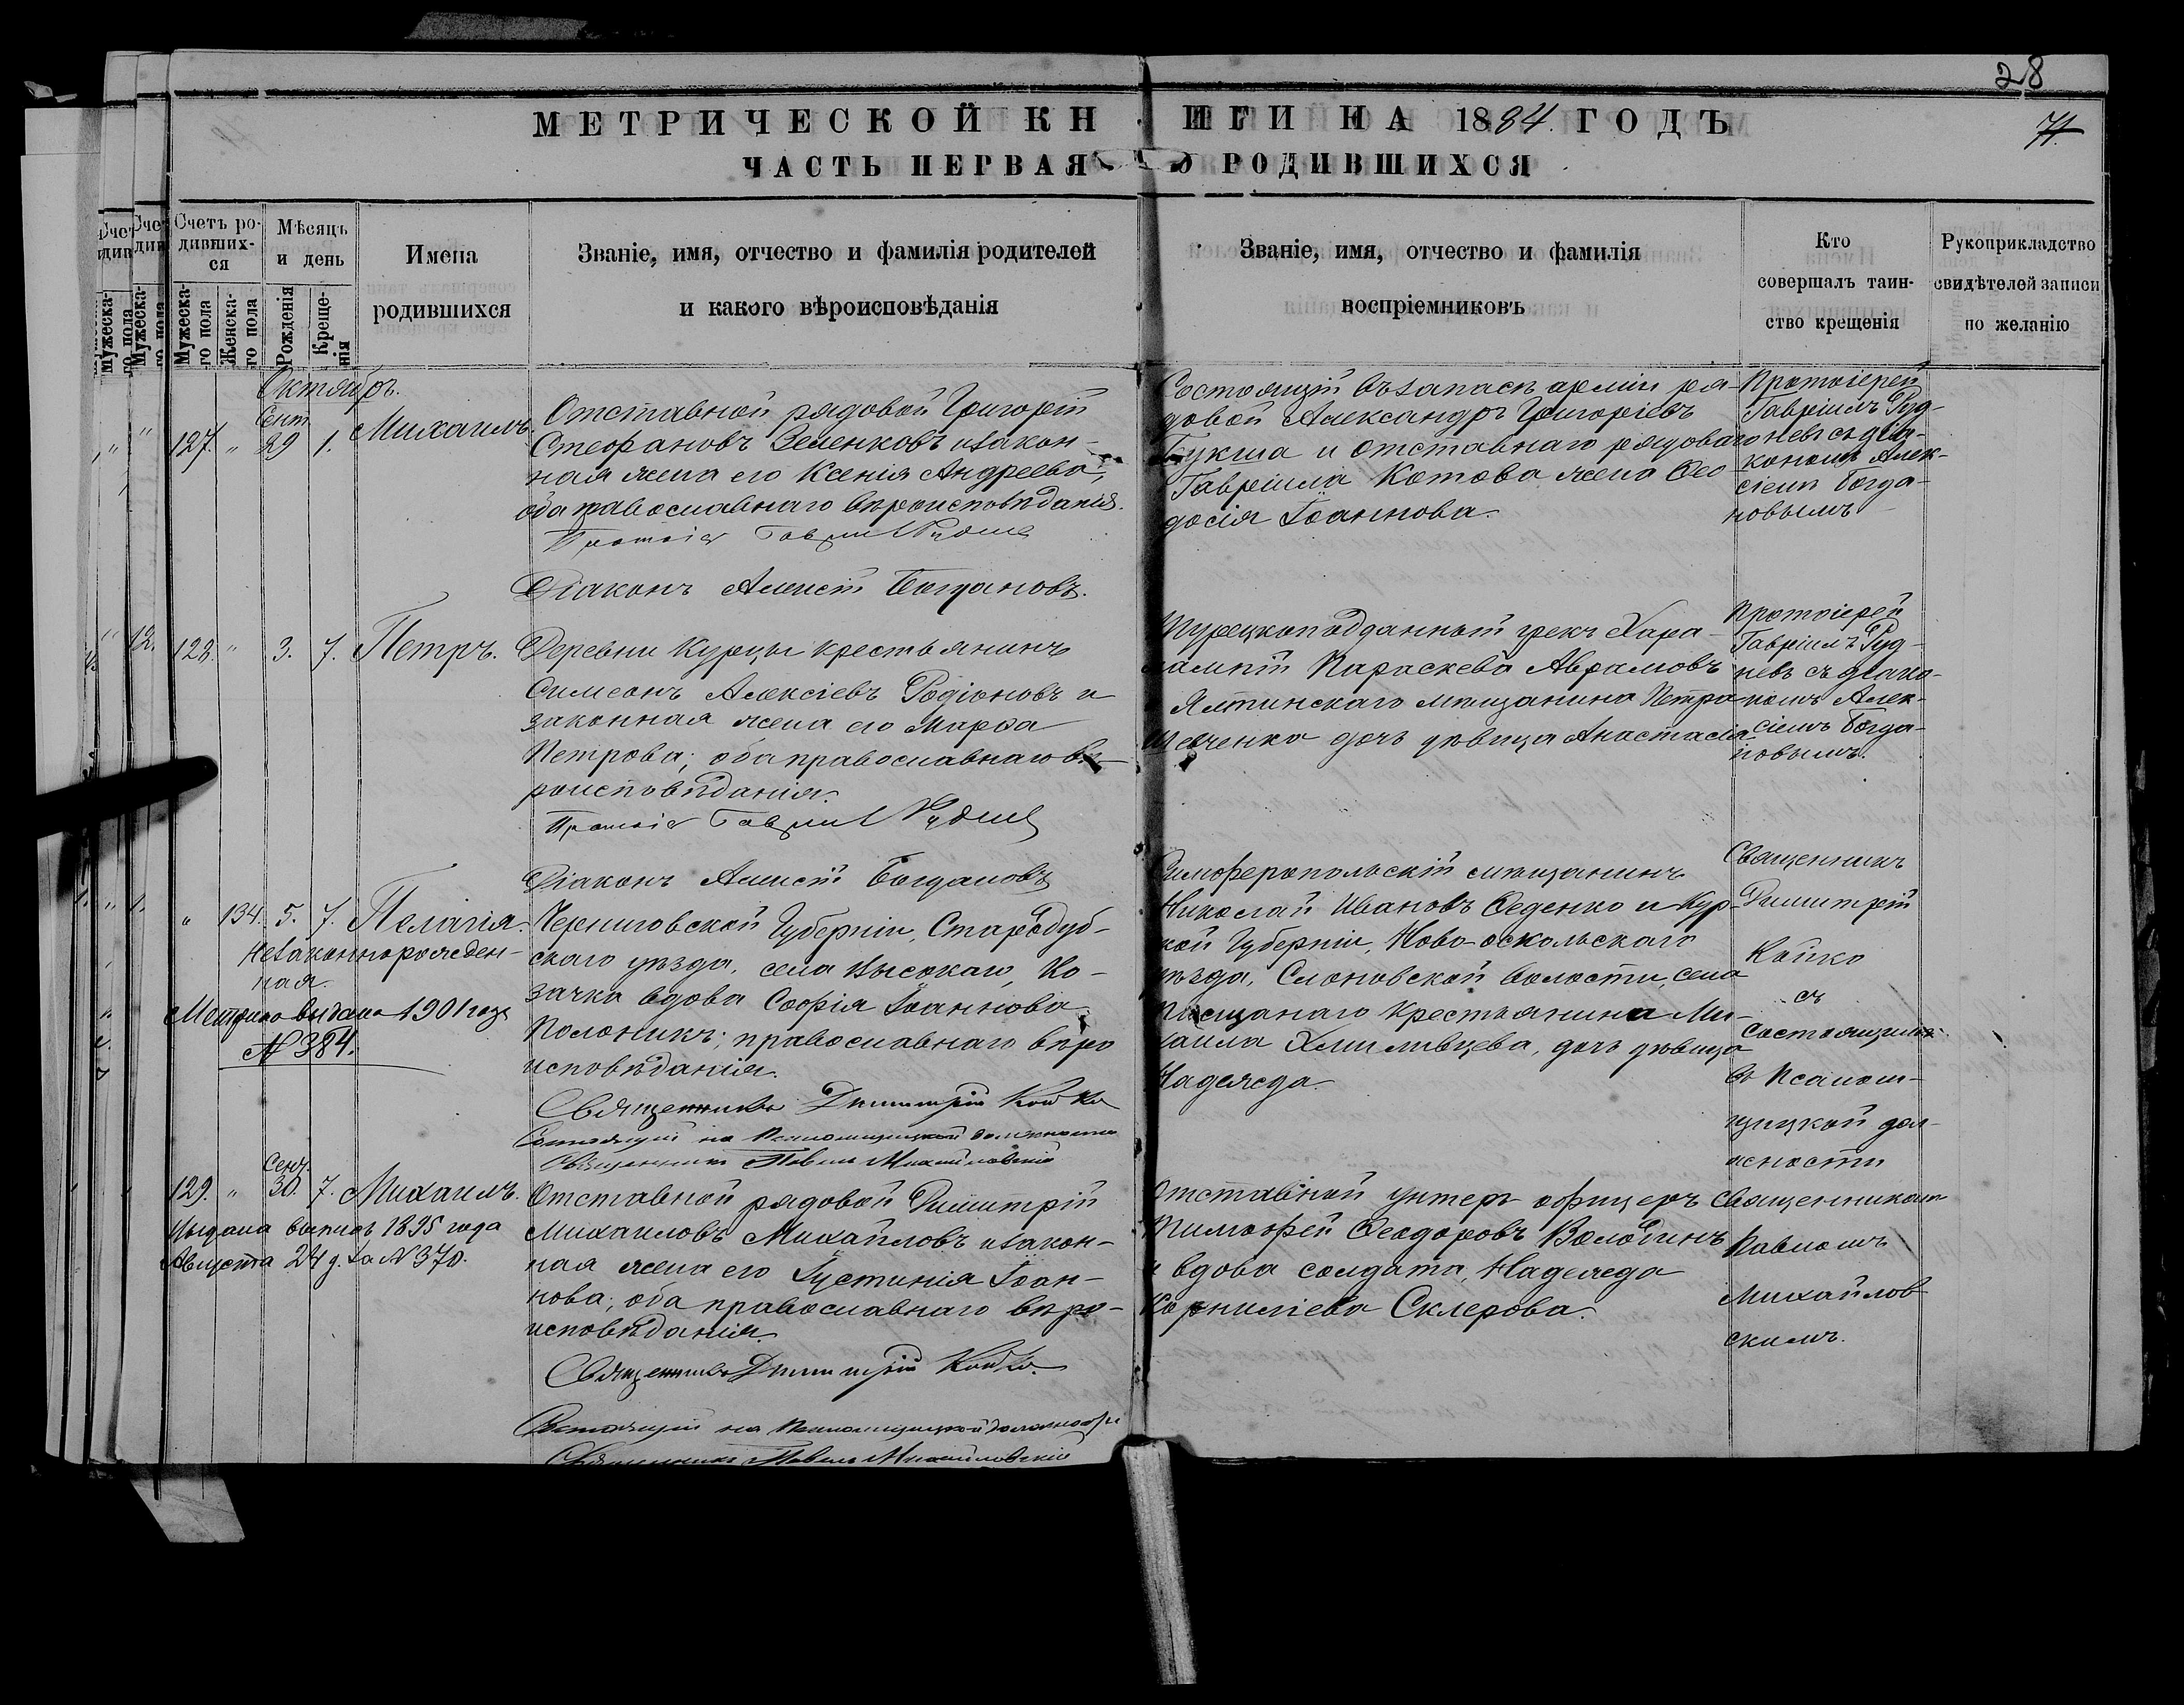 28
МЕТРИЧЕСКОЙ КНИГИ НА 1884. ГОДЪ
71.
ЧАСТЬ ПЕРВАЯ О РОДИВШИХСЯ
Счетъ ро-
дивших-
ся
Мужеска-
го пола
Женска-
го пола
Мѣсяцъ
и день
Рожденія
Креще-
нія
Имена
родившихся
Званіе, имя, отчество и фамилія родителей
и какого вѣроисповѣданія
Званіе, имя, отчество и фамилія
воспріемниковъ
Кто
совершалъ таин-
ство крещенія
Рукоприкладство
свидѣтелей записи
по желанію
Октябрь.
127. " Сент 29 1. Михаилъ.
Отставной рядовой Григорій
Стефановъ Зеленковъ и закон-
ная жена его Ксенія Андреева;
оба православнаго вѣроисповѣданія.
Діаконъ Алексій Богдановъ.
Состоящій въ запасѣ арміи ря-
довой Александръ Григоріевъ
Букша и отставнаго рядоваго
Гавріила Котова жена Ѳео
досія Іоаннова.
Протоіерей
Гавріилъ Руд-
невъ съ діа-
кономъ Алек-
сіемъ Богда-
новымъ
128. " 3. 7. Петръ.
Деревни Курцы крестьянинъ
Симеонъ Алексіевъ Родіоновъ и
законная жена его Марѳа
Петрова; оба православнаго вѣ-
роисповѣданія.
Діаконъ Алексій Богдановъ
Турецкоподданный грекъ Хара-
лампій Параскева Аврамовъ
Ялтинскаго мѣщанина Петра
Шевченко дочь дѣвица Анастасія
Протоіерей
Гавріилъ Руд-
невъ съ діако-
номъ Алек-
сіемъ Богда-
новымъ.
" 134. 5. 7. Пелагія.
Незаконнорожден-
ная.
Метрика выдана 1901 года
№ 384.
Черниговской Губерніи, Стародуб-
скаго уѣзда, села Высокаго, Ко-
зачка вдова Софія Іоаннова
Полоникъ; православнаго вѣро
исповѣданія.
Священникъ Димитрій Койко
Состоящій на Псаломщицкой должности
Священникъ Павелъ Михайловскій
Симферопольскій мѣщанинъ
Николай Ивановъ Ѳеденко и Кур-
ской Губерніи, Ново-оскольскаго
уѣзда, Слоновской волости, села
Песщанаго крестьянина Ми-
хаила дочь дѣвица
Надежда
Священникъ
Димитрій
Койко
съ
состоящимъ
въ Псалом-
щицкой дол-
жности
129. " Сент. 30. 7. Михаилъ.
Выдана выпись 1895 года
Августа 24 д. за № 370.
Отставной рядовой Димитрій
Михаиловъ Михайловъ и закон-
ная жена его Іустинія Іоан-
нова; оба православнаго вѣро-
исповѣданія.
Священникъ Димитрій Койко.
Состоящій на Псаломщицкой должности
Священникъ Павелъ Михайловскій
Отставной унтеръ офицеръ
Тимофей Ѳеодоровъ Вологинъ
и вдова солдата, Надежда
Корниліева Склерова.
Священникомъ
Павломъ
Михайлов
скимъ.